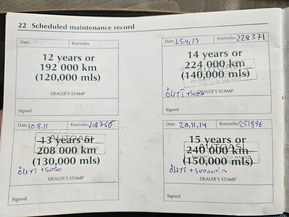 22 Scheduled maintenance record
Date Km/miles
12 years or
192 000 km
(120,000 mls)
DEALER'S STAMP
Signed
Date Km/miles 228371
14 years or
224 000 km
(140,000 mls)
DEALER'S STAMP
Signed
Date 10.8.11 Km/miles
13 years or
208 000 km
(130,000 mls)
DEALER'S STAMP
Signed
Date 20,11,14 Km/miles 251896
15 years or
240 000 km
(150,000 mls)
DEALER'S STAMP
Signed